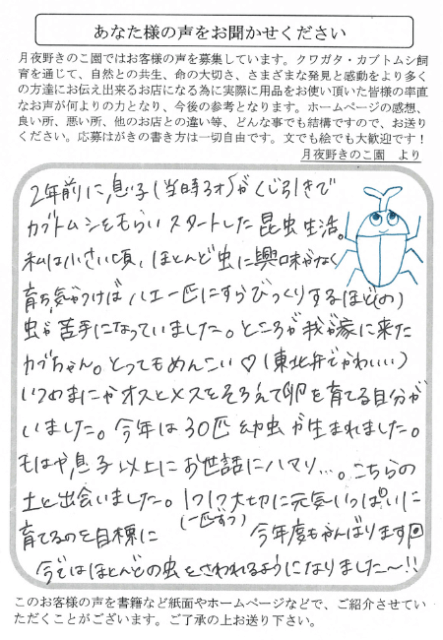 あなた様の声をお聞かせください
月夜野きのこ園ではお客様の声を募集しています。クワガタ・カブトムシ飼
育を通じて、自然との共生、命の大切さ、さまざまな発見と感動をより多く
の方達にお伝え出来るお店になる為に実際に用品をお使い頂いた皆様の率直
なお声が何よりの力となり、今後の参考となります。ホームページの感想、
良い所、悪い所、他のお店との違い等、どんな事でも結構ですので、お送り
ください。応募はがきの書き方は一切自由です。文でも絵でも大歓迎です！
月夜野きのこ園　より
2年前に息子(当時3才)がくじ引きで
カブトムシをもらいスタートした昆虫生活。
私は小さい頃、ほとんど虫に興味がなく
育ち、気がつけばハエ一匹にすらびっくりするほど(の)
虫が苦手になっていました。ところが我が家に来た
カブちゃん。とってもめんこい♡(東北弁でかわいい)
いつのまにかオスとメスをそろえて卵を育てる自分が
いました。今年は30匹幼虫が生まれました。
もはや息子以上にお世話にハマり…。こちらの
土と出会いました。1つ1つ大切に元気いっぱいに
(一匹ずつ)
育てるのを目標に　今年度もがんばります
今ではほとんどの虫をさわれるようになりました〜!!
このお客様の声を書籍など紙面やホームページなどで、ご紹介させてい
ただくことがございます。ご了承の上お送り下さい。